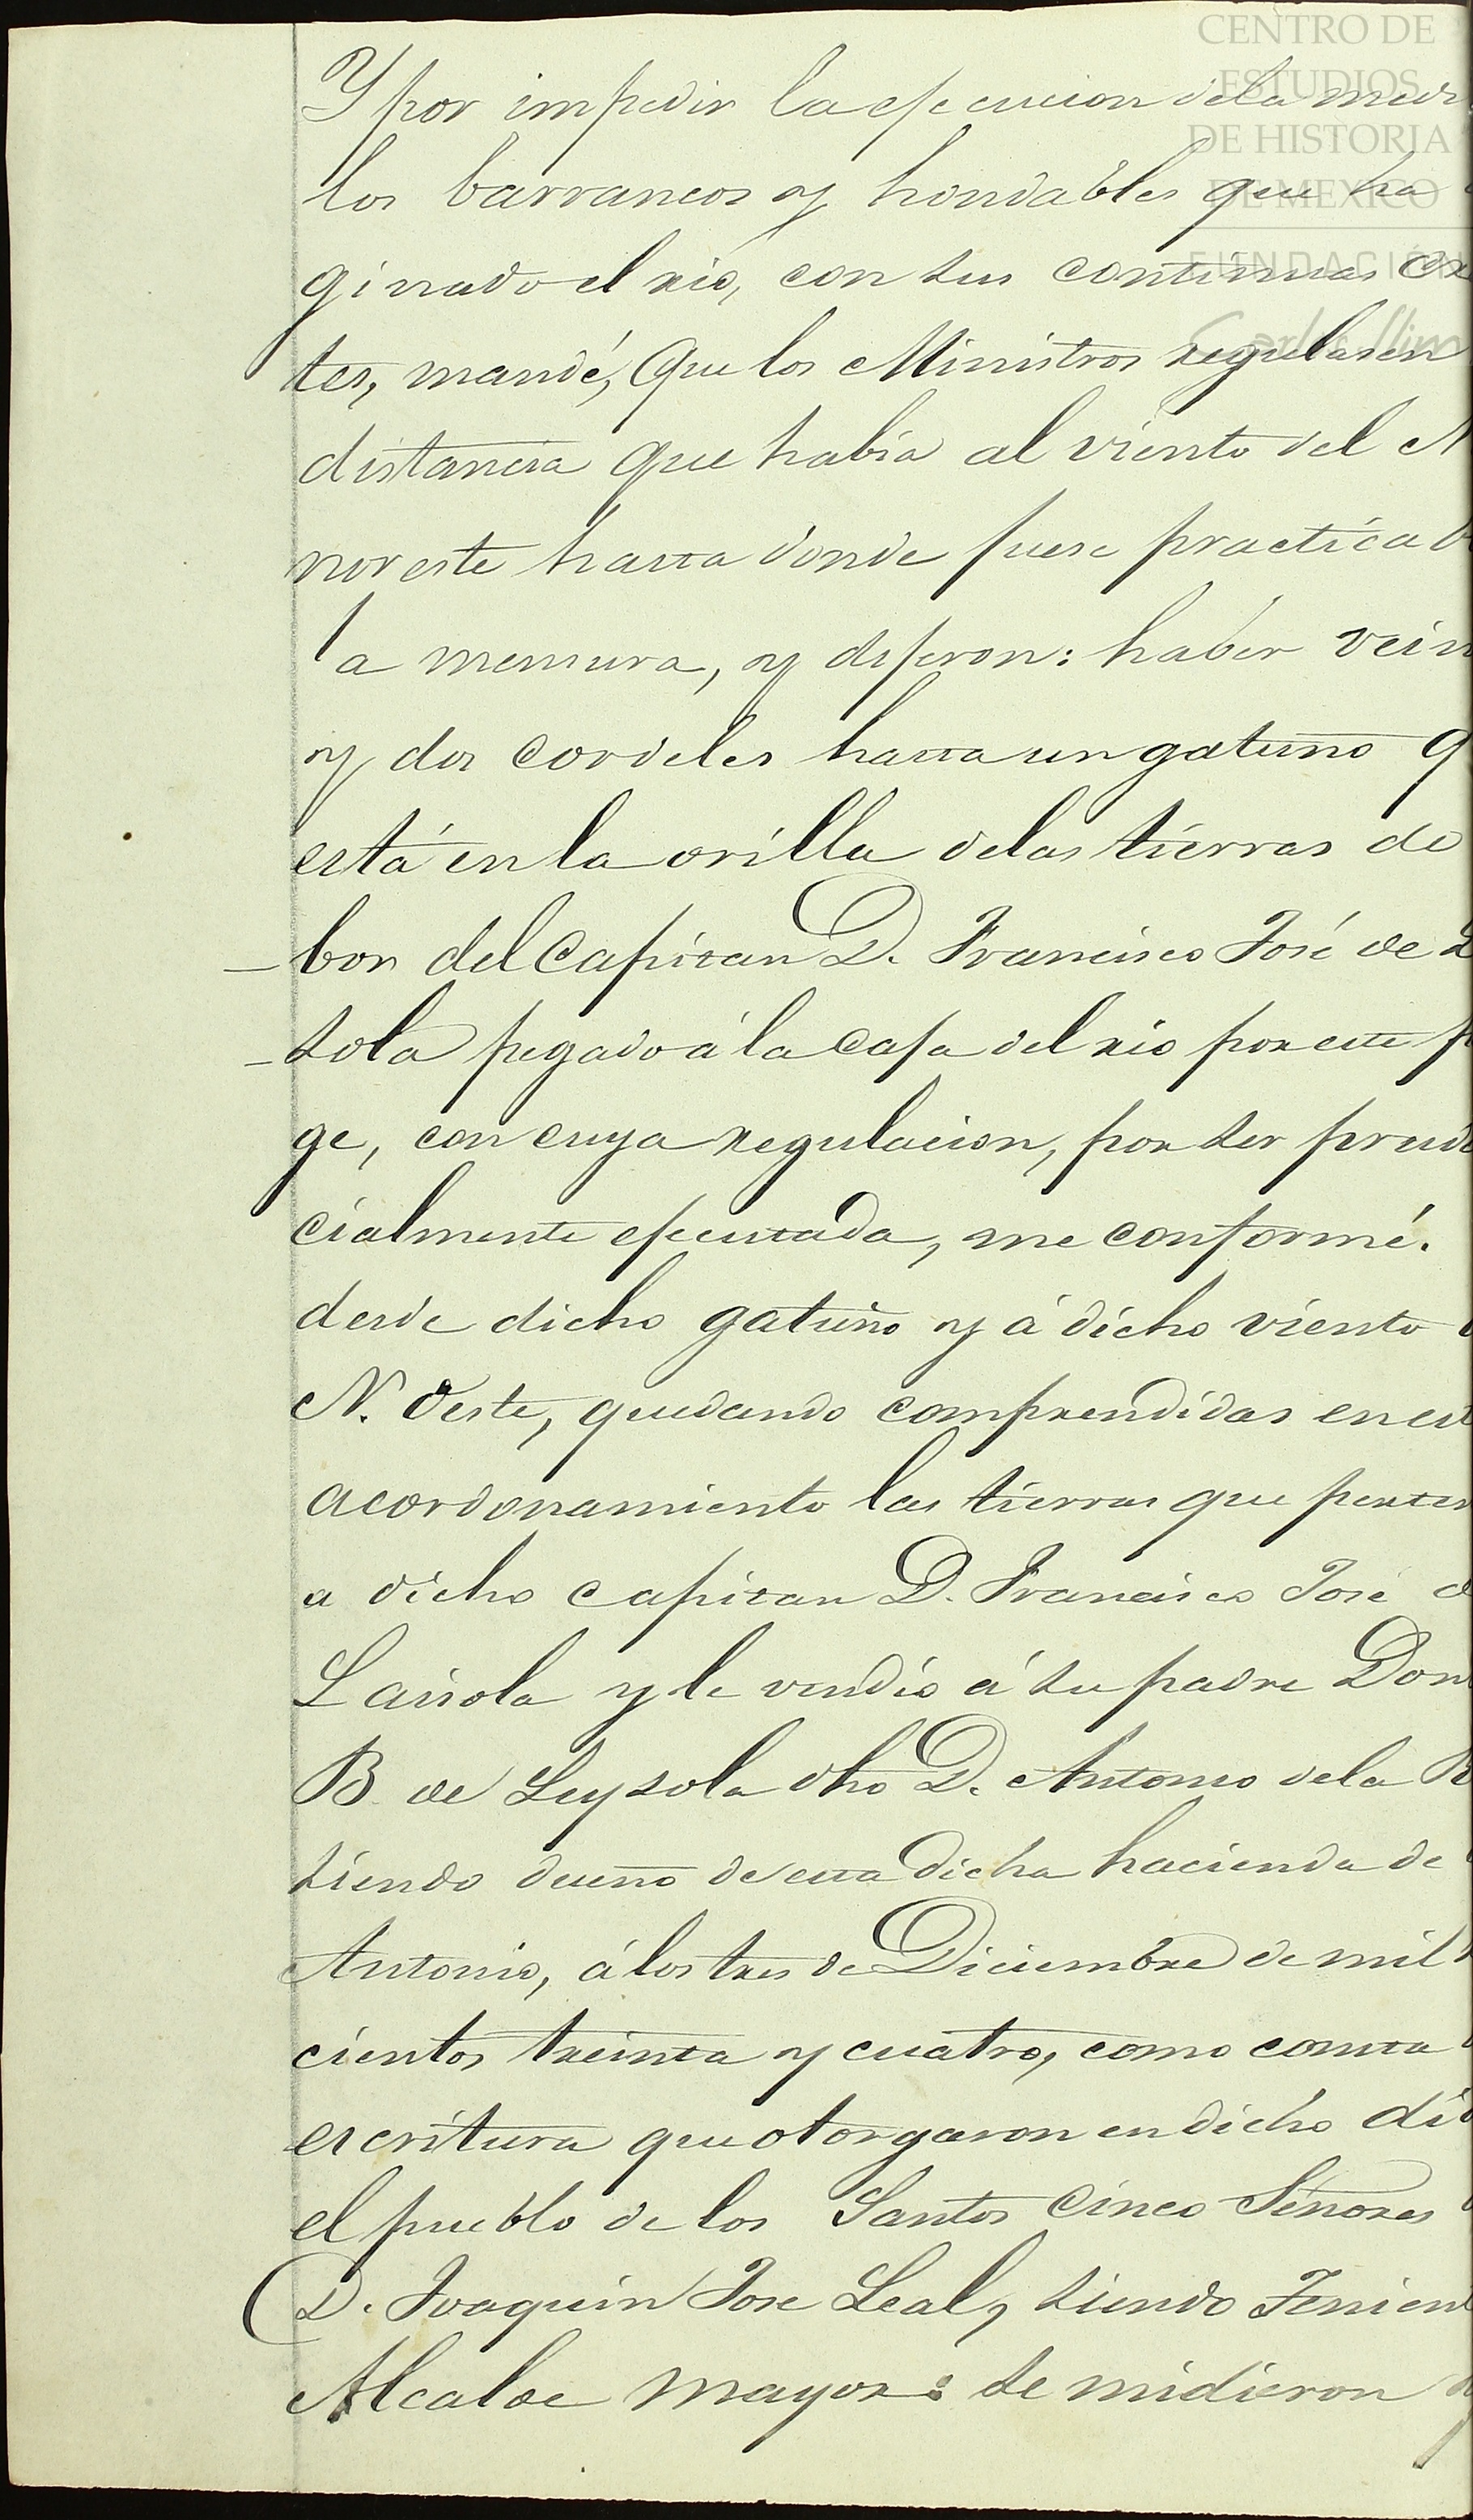 CENTRO DE
ESTUDIOS
DE HISTORIA
DE MEXICO
FUNDACIÓN
Carlos Slim
Y por impedir la ejecucion dela
los barrancos y hondables que ha
ginado el rio, con sus continuas
tes, mandé, Que los Ministros regulasen
distancia que habia al viento del N
noreste hasta donde fuese practicab
la mensura, y dijeron: haber vein
y dos cordeles hasta un gatuño q
está en la orilla delas tierras de
bor del Capitan D. Francisco José de L
sola pegado á la caja del rio por este p
ge, con cuya regulacion, por ser prude
cialmente ejecutada, me conformé.
desde dicho gatuño y á dicho viento
N. Oeste, quedando comprendidas en est
acordonamiento las tierras que perten
a dicho capitan D. Francisco José d
Laisola y le vendió á su padre Don
B. de Leysola dho D. Antonio dela R
siendo dueño de esta dicha hacienda de
Antonio, á los tres de Diciembre de mil
cientos treinta y cuatro, como consta
escritura que otorgaron en dicho dia
el pueblo de los Santos Cinco Señores
D. Joaquin Jose Leal, siendo Tenient
Alcalde mayor: se midieron